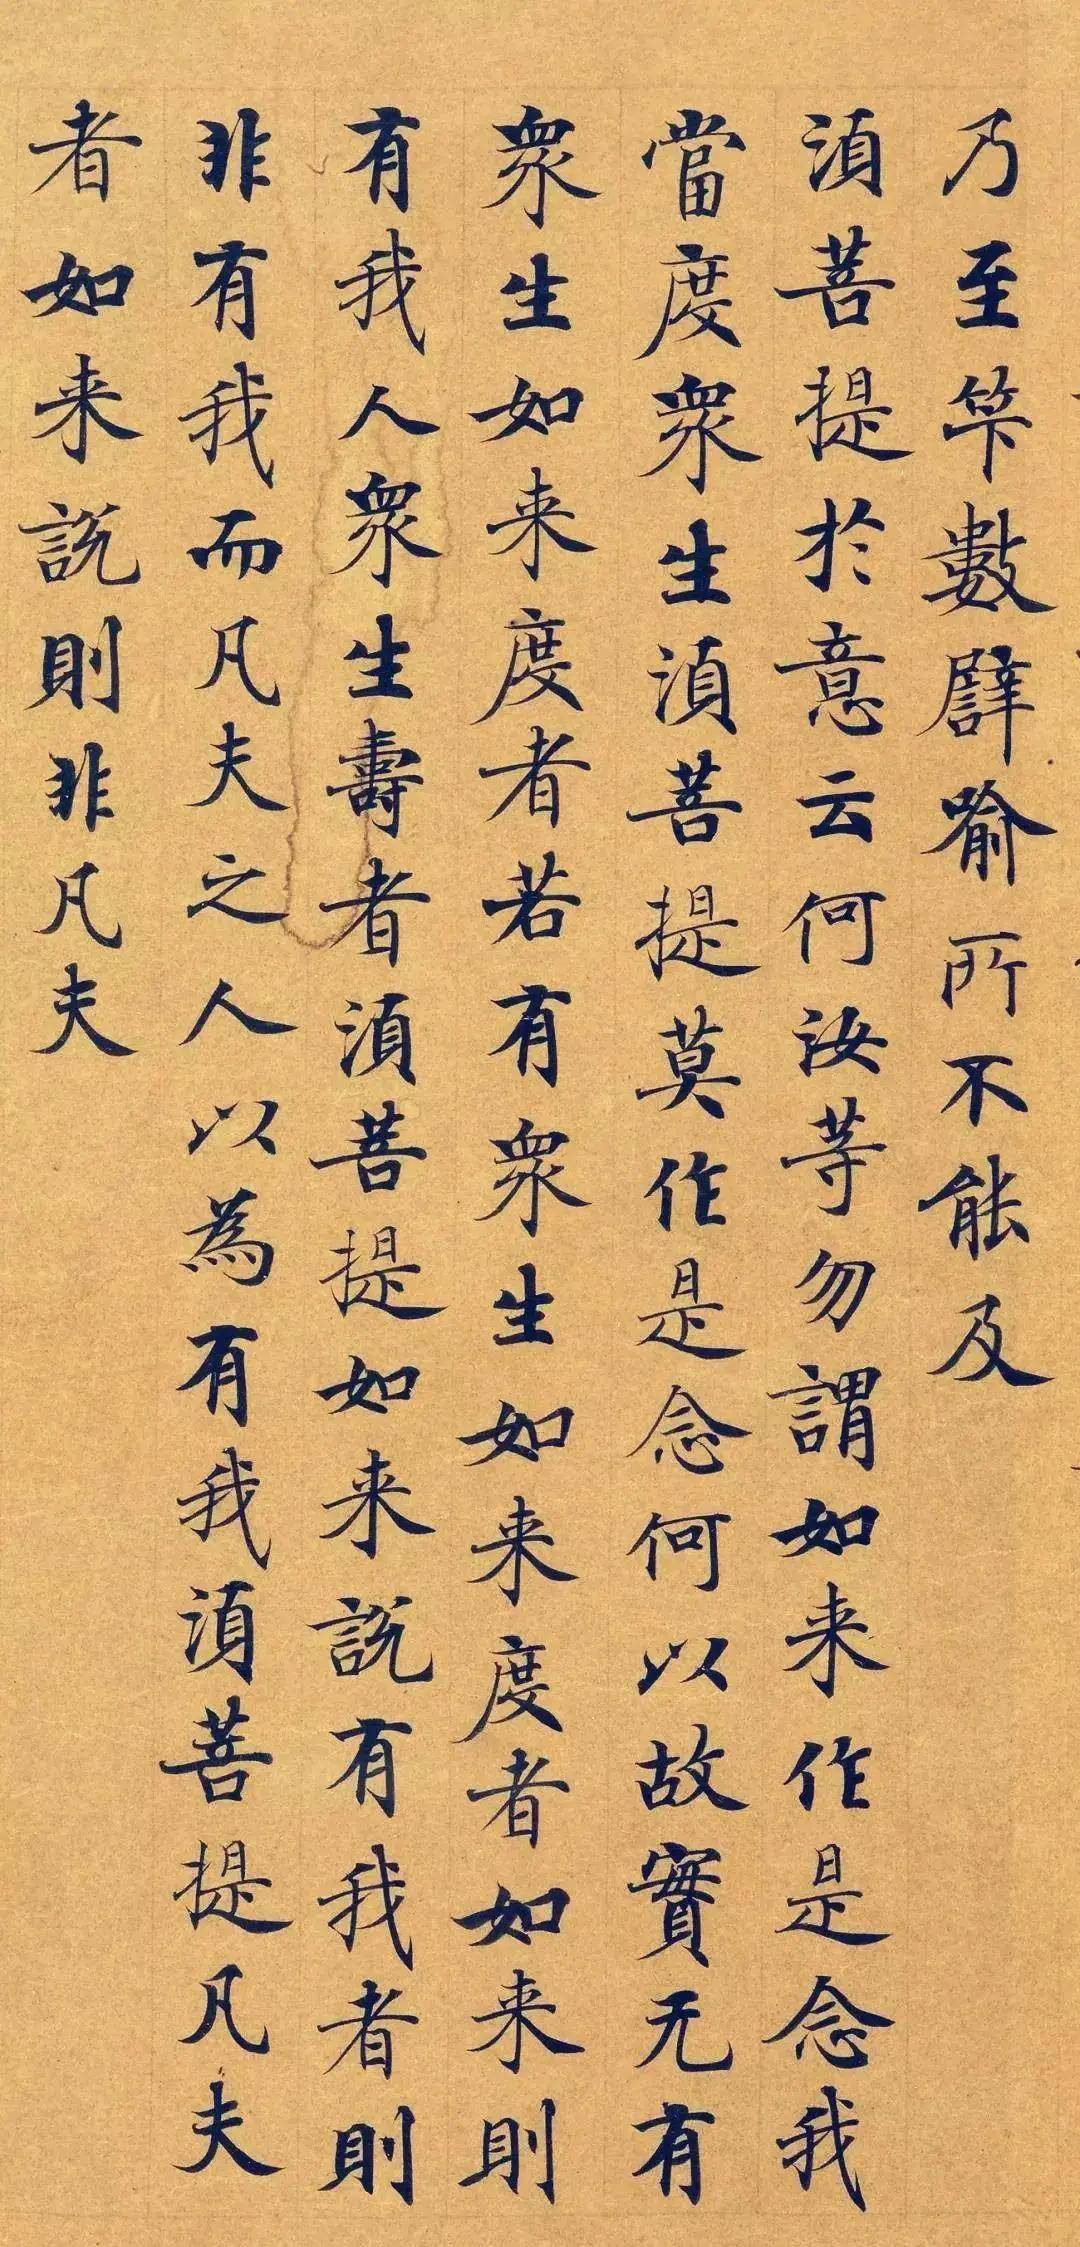 乃至筭數譬喻所不能及
湏菩提於意云何汝等勿謂如来作是念我
當度眾生湏菩提莫作是念何以故實无有
眾生如来度者若有眾生如来度者如来則
有我人眾生壽者湏菩提如来説有我者則
非有我而凡夫之人以為有我湏菩提凡夫
者如来説則非凡夫